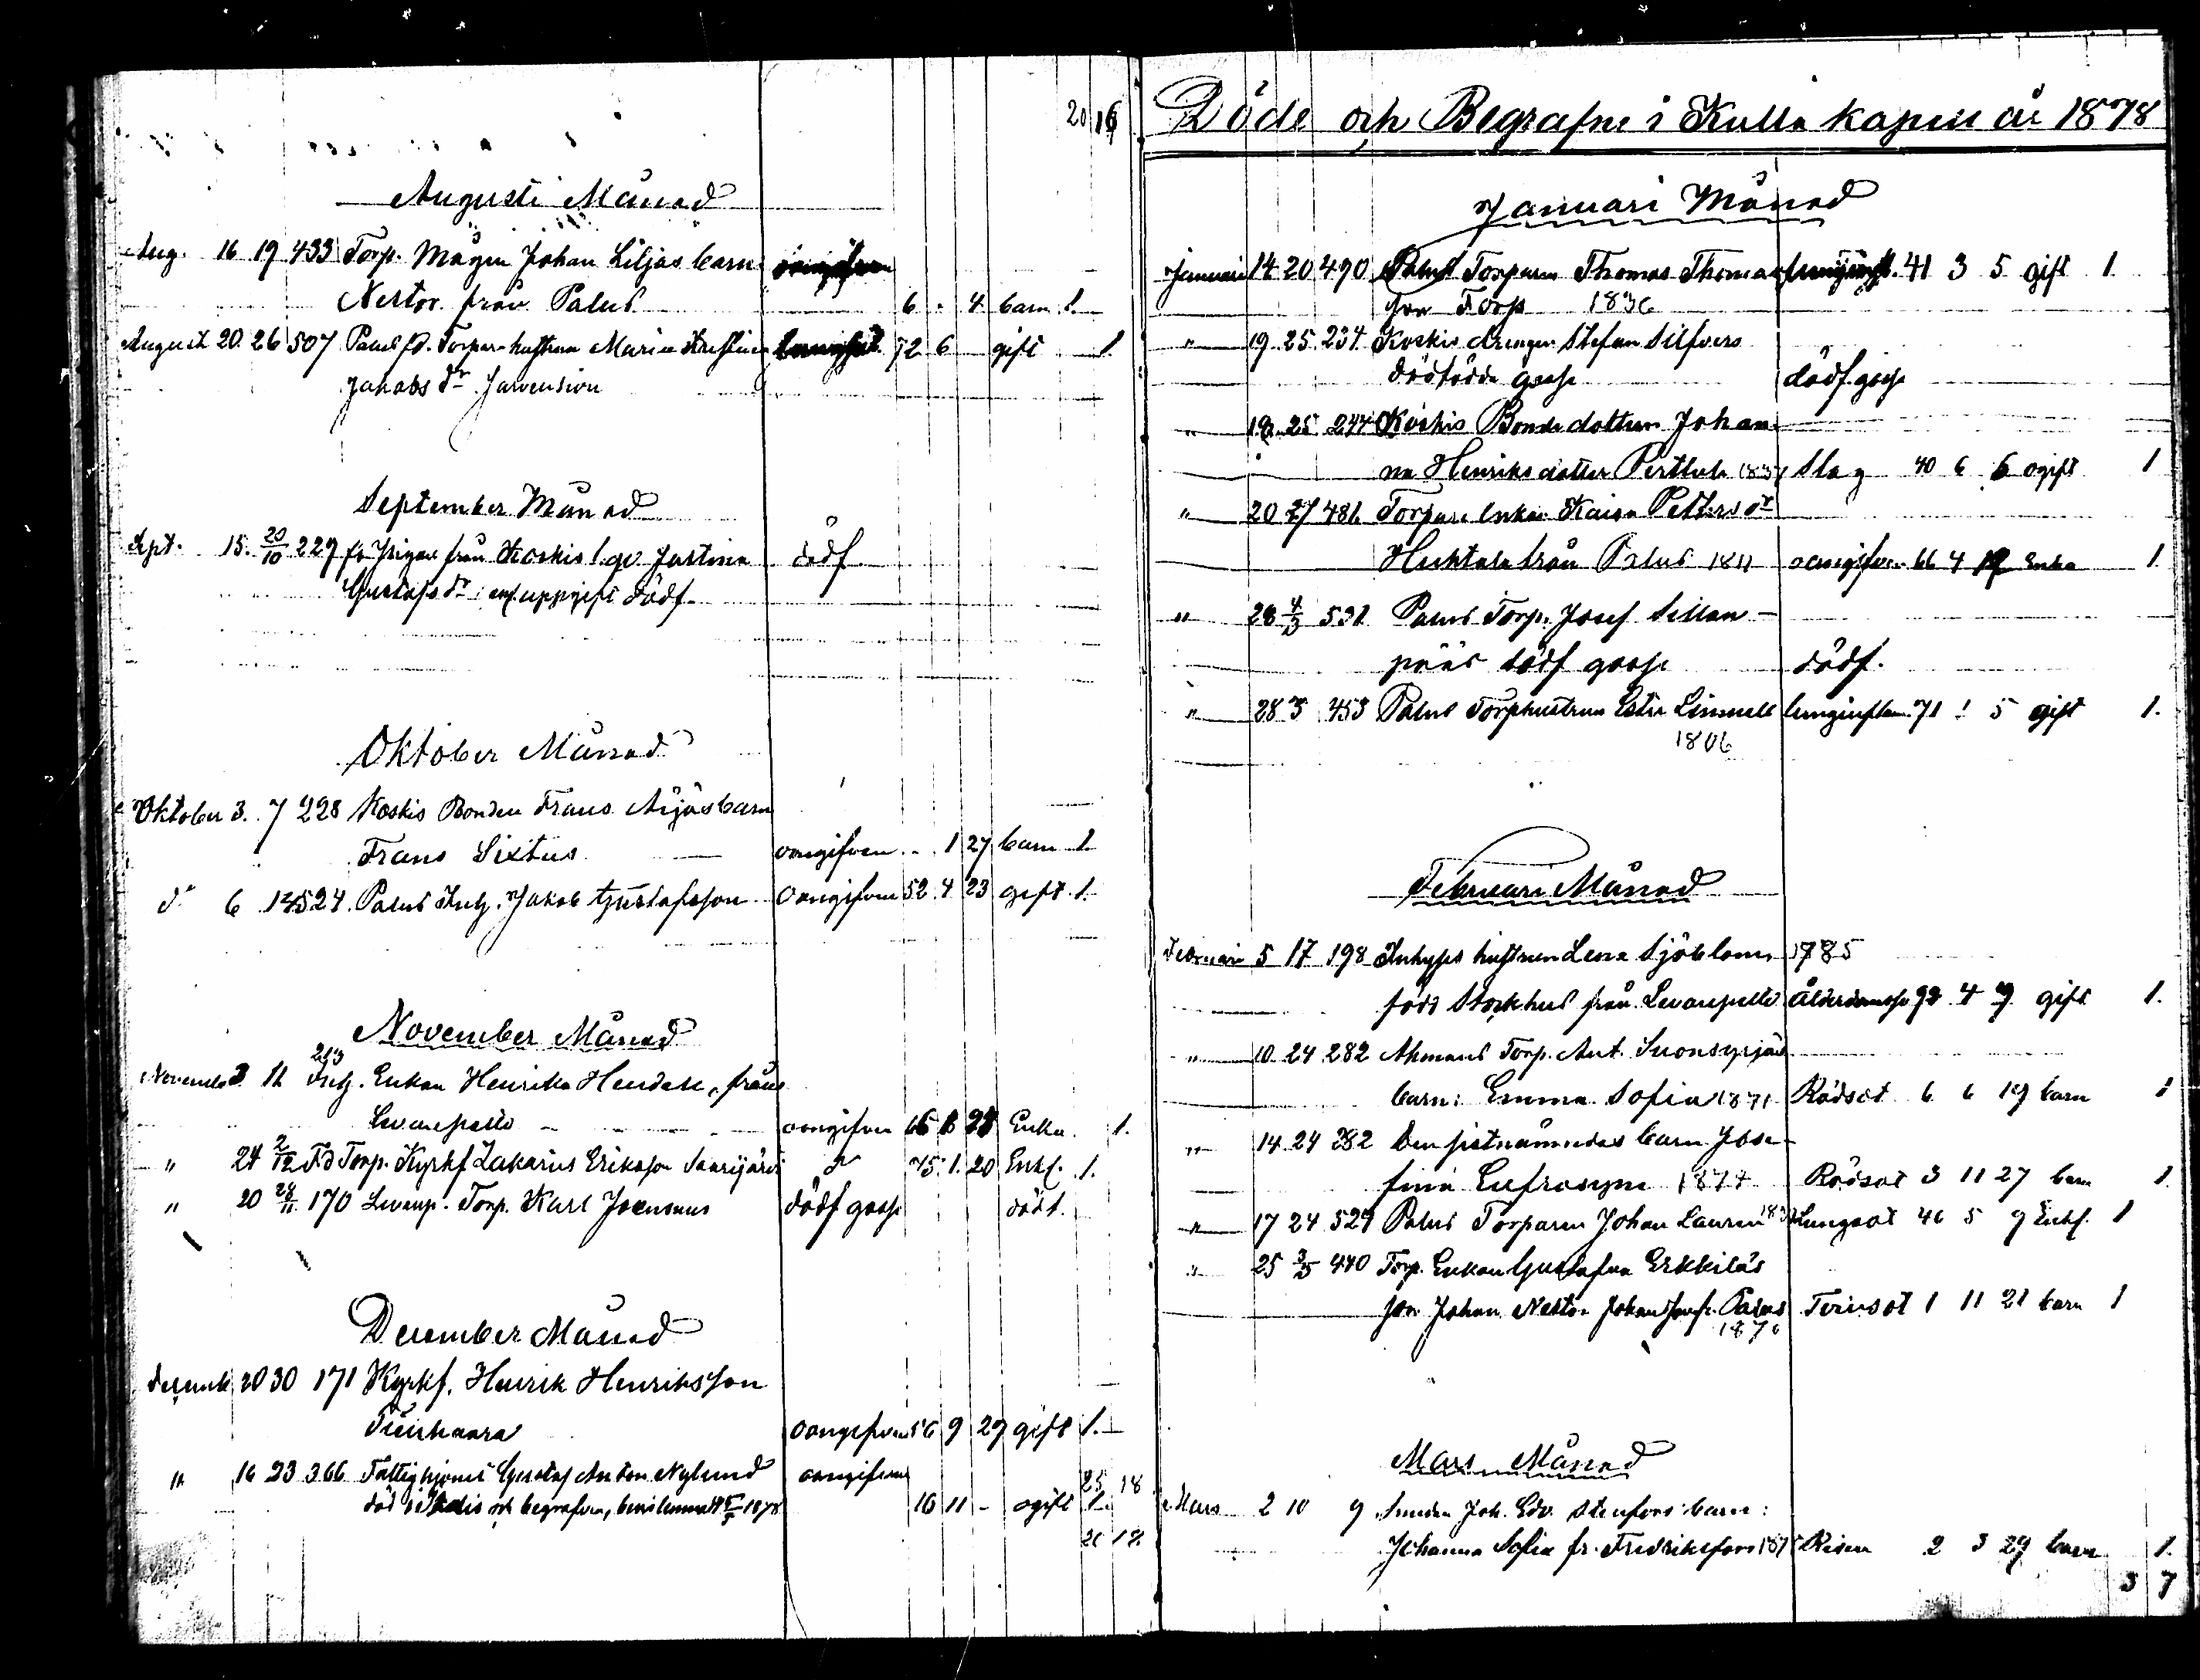 20 16
Augusti Månad
Aug. 16 19 433 Torp. Mågen Johan Liljas barn
Nestor från Palus 6 - 4 barn 1
August 20 26 507 Palus fd. Torpare hustrun Maria Kristina 72 6 gift 1
Jakobs dr Jarvensivu
September Månad
Sept. 15. 20/10 229 från Koskis l. qv. Justina dödf
Gustafs dr: enl. uppgift dödf.
Oktober Månad
Oktober 3. 7 228 Koskis Bonden Frans Äijäs barn
Frans Sixtus oangifven - 1 27 barn 1.
do 6 14 524 Palus Inh. Jakob Gustafsson oangifven 52 4 23 gift 1.
November Månad
213
November 3 11 Inh. Enkan Henrika Hendell, från
Levanpelto oangifven 66 8 28 Enka 1.
" 24 2/12 Fd Torp. Kyrkf Zakarius Eriksson Saarijärvi do 75 1 20 Enkl. 1.
" 20 28/11 170 Levanp. Torp. Karl Joensuus dödf gosse dödf.
December Månad
Decemb. 20 30 171 Kyrkf. Henrik Henriksson
Tuurhaara oangifven 56 9 29 gift 1.
" 16 23 366 Fattighjonet Gustaf Anton Nylund oangifven 25 18
död i och begrafven, 1878 16 11 - ogift 1.
26 18
Döde och Begrafne i Kulla kapell år 1878
Januari Månad
Januari 14 20 490 Palus Torparen Thomas Thomas lunginfl. 41 3 5 gift 1
son Torp 1836
" 19 25 234 Koskis drängen Stefan Silfvers
dödfödda gosse dödf. gosse
" 19 25 244 Koskis Bondedottern Johan-
na Henriksdotter Perttula 1837 Slag 40 6 6 ogift 1
" 20 27 486 Torpare enkan Kaisa Petters dr
Huhtala från Palus 1811 oangifven 66 4 12 Enka 1.
" 28 4/3 531 Palus Torp. Josef Sillan-
pääs dödf gosse dödf.
" 28 3 453 Palus Torphustrun Ester Linnell lunginflam. 71 1 5 gift 1.
1806
Februari Månad
Februari 5 17 198 Inhyses hustrun Lena Sjöblom 1785
född Storkhus från Levanpelto Ålderdomssv 92 4 9 gift 1.
" 10 24 282 Ahmaus Torp. Ant. Suonsyrjäs
barn: Emma Sofia 1871 Rödsot 6 6 19 barn 1
" 14 24 282 Den sistnämndas barn Jose-
fina Eufrosyne 1874 Rödsot 3 11 27 barn 1
" 17 24 529 Palus Torparen Johan Lauren 1831 Lungsot 46 5 9 Enkl. 1
" 25 3/3 440 Torp. Enkan Gustafva Erkkiläs
son Johan Nestor Johansson fr. Palus Tvinsot 1 11 21 barn 1
1876
Mars Månad
Mars 2 10 9 Smeden Joh. Edv. Stenfors barn:
Johanna Sofia fr. Fredriksfors 1875 Risen 2 3 29 barn 1.
3 7